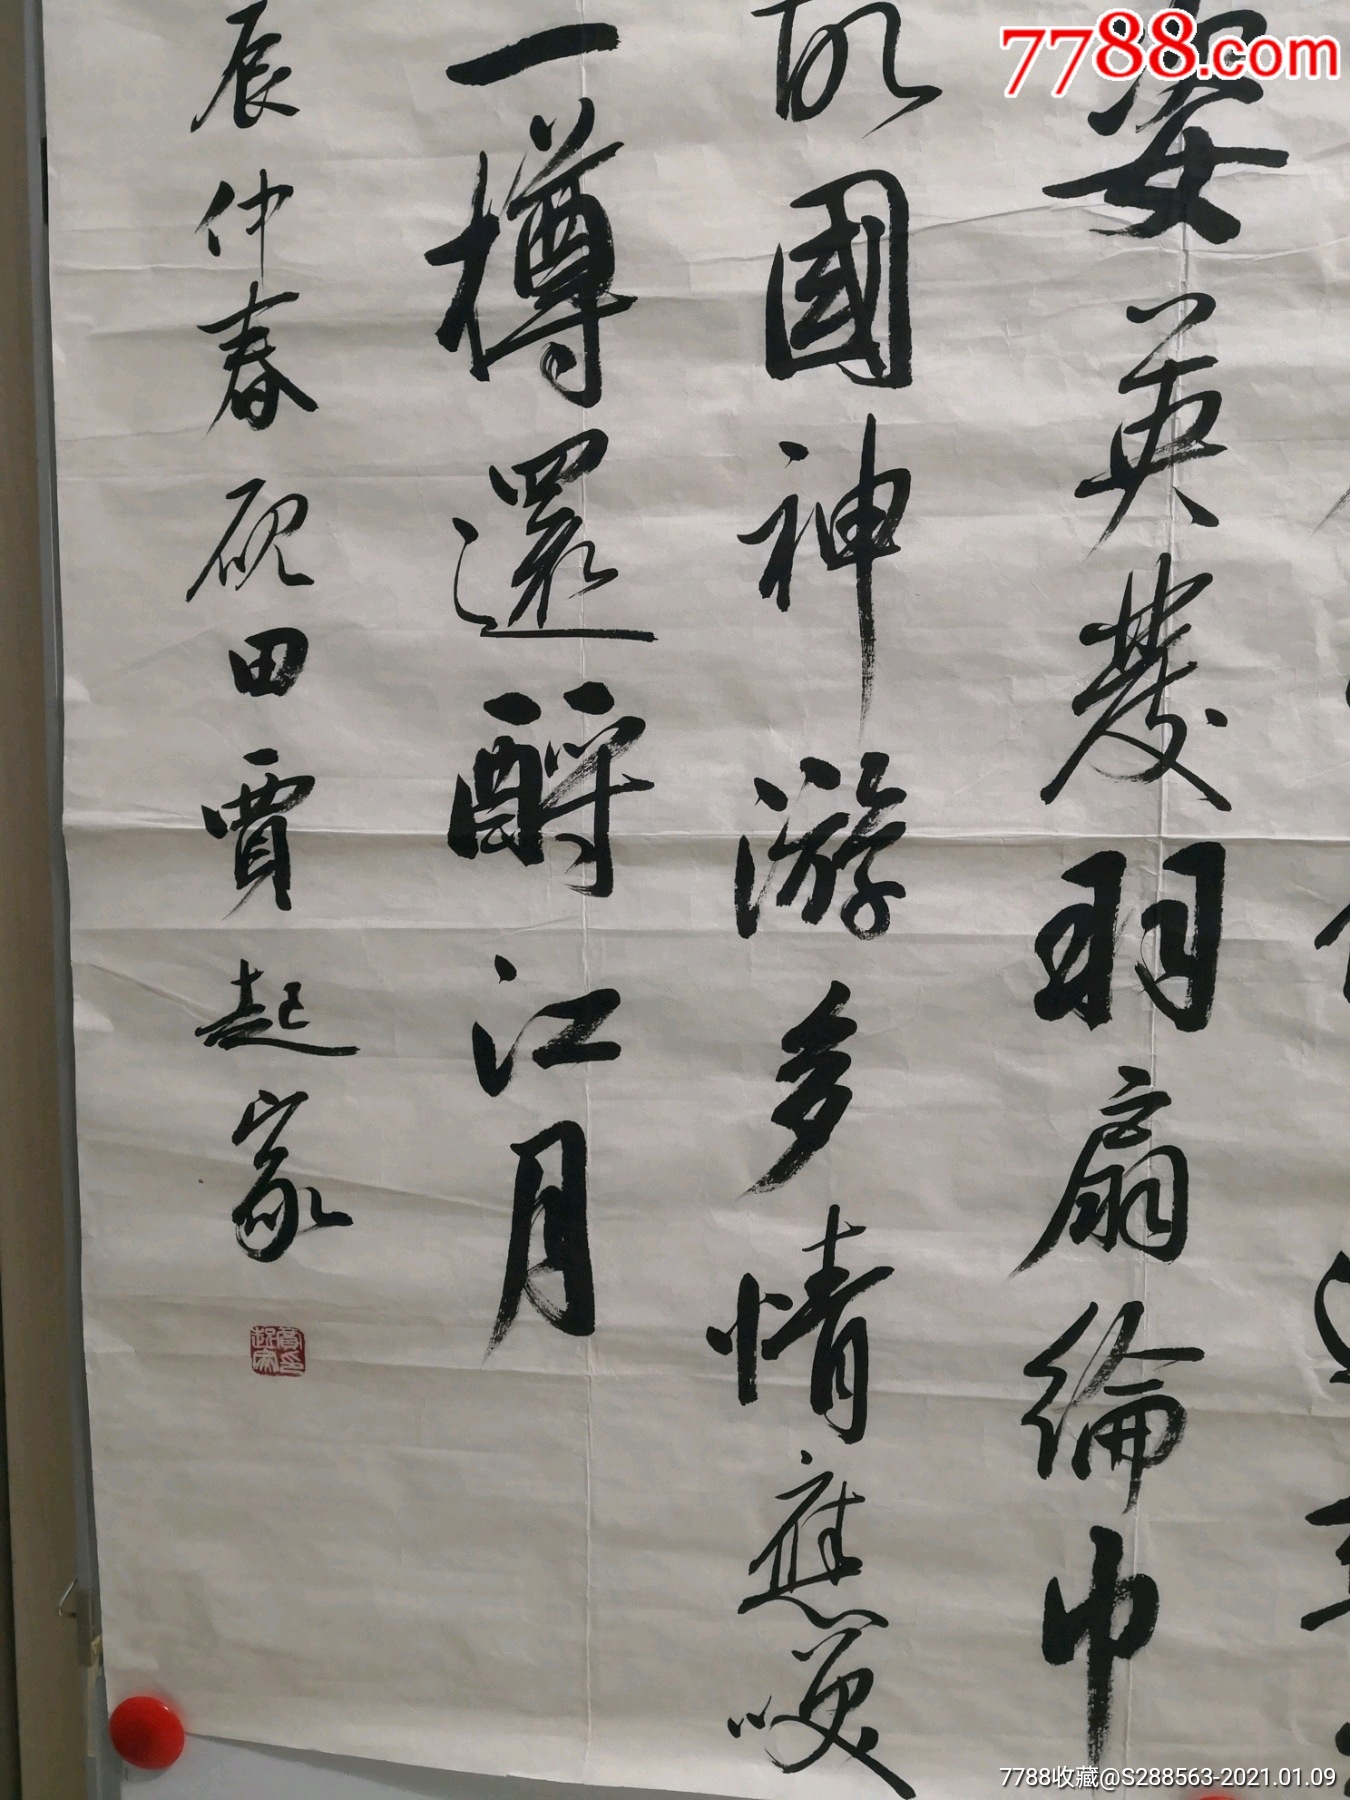 7788.com
姿英發羽扇綸巾
故國神游多情應笑
一樽還酹江月
辰仲春砚田賈起家
賈印起家
7788收藏@S288563-2021.01.09